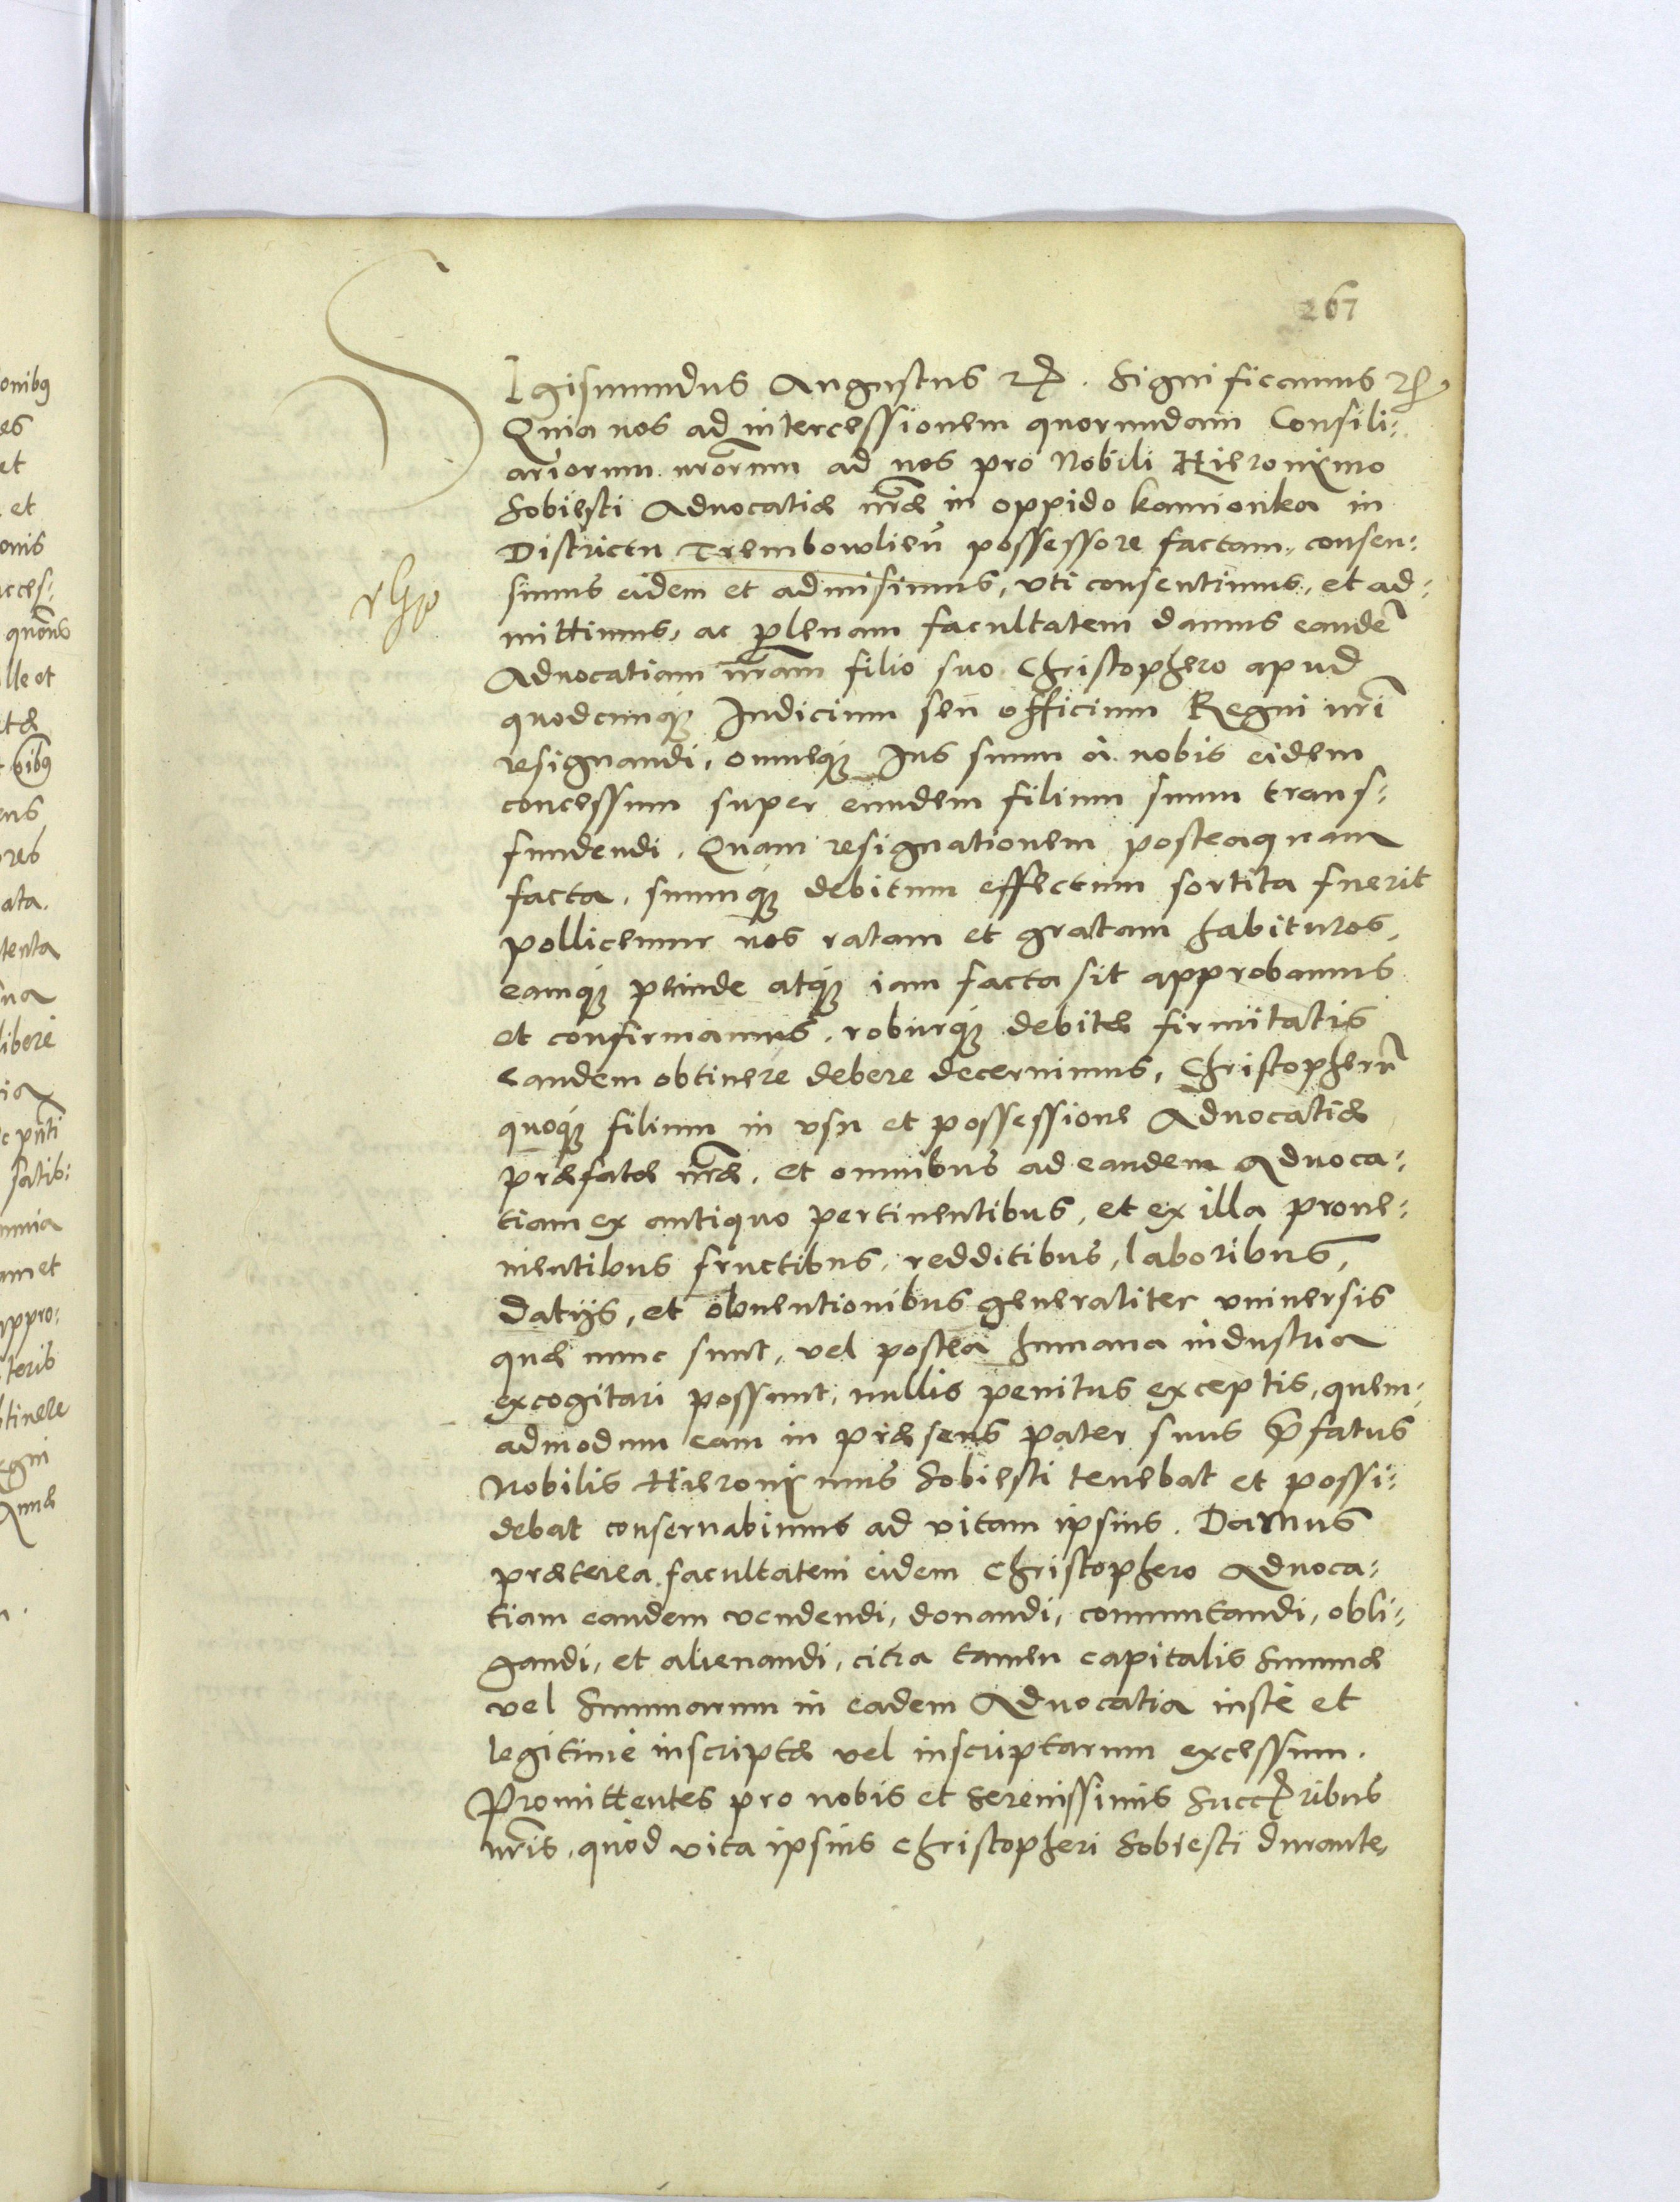 267
SIgismundus Augustus etc. Significamus etc.
Quia nos ad intercessionem quorundam Consili:
ariorum nrorum ad nos pro Nobili Hieronimo
Sobiesti Advocatiæ nræ in oppido Kamionka in
Districtu Trembowlien possessore factam, consen:
simus eidem et admisimus, uti consentimus, et ad:
mittimus, ac plenam facultatem damus eandem
Advocatiam nram filio suo Christophero apud
quodcunque Iudicium seu officium Regni nri
resignandi, omneque Ius suum à nobis eidem
concessum super eundem filium suum trans:
fundendi. Quam resignationem posteaquam
facta, suumque debitum effectum sortita fuerit
pollicemur nos ratam et gratam habituros,
eamque perinde atque iam facta sit approbamus
et confirmamus, roburque debitæ firmitatis
eandem obtinere debere decernimus, Christopherum
quoque filium in usu et possessione Advocatiæ
præfatæ nræ, et omnibus ad eandem Advoca:
tiam ex antiquo pertinentibus, et ex illa prove:
nientibus fructibus, redditibus, laboribus,
datijs, et obventionibus generaliter universis
quæ nunc sunt, vel postea humana industria
excogitari possunt, nullis penitus exceptis, quem:
admodum eam in præsens pater suus pfatus
Nobilis Hieronimus Sobiesti tenebat et possi:
debat conservabimus ad vitam ipsius. Damus
præterea facultatem eidem Christophero Advoca:
tiam eandem vendendi, donandi, commutandi, obli:
gandi, et alienandi, citra tamen capitalis Summæ
vel Summarum in eadem Advocatia iustè et
legitimè inscriptæ vel inscriptarum excessum.
Promittentes pro nobis et Serenissimis Succribus
nris, quod vita ipsius Christopheri Sobiesti durante,